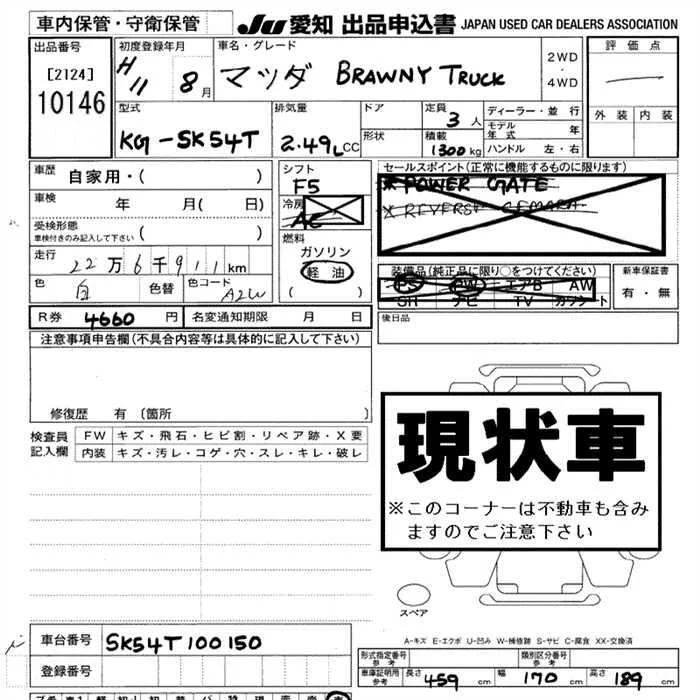 車内保管・守衛保管 JU 愛知 出品申込書 JAPAN USED CAR DEALERS ASSOCIATION
出品番号 初度登録年月 車名・グレード 2WD ・ 4WD 評価点
[2124] H11 8月 マツダ BRAWNY TRUCK
10146 外装 内装
型式 排気量 ドア 定員 3人 ディーラー・並行
KG-SK54T 2.49L CC 形状 積載 1300kg モデル年式 年
ハンドル 左・右
車歴 自家用・( ) シフト F5 セールスポイント(正常に機能するものに限ります)
車検 年 月( 日) 冷房 AC ※POWER GATE
受検形態 車検付きのみ記入して下さい ( ) ※REVERSE CEMARA
燃料 ガソリン 軽油 ( )
走行 22万6千911km 装備品(純正品に限り○をつけてください) 新車保証書
色 白 色替 色コード A2W PS PW エアB AW 有・無
SH ナビ TV カワシート
R券 4660円 名変通知期限 月 日 後日品
注意事項申告欄(不具合内容等は具体的に記入して下さい)
修復歴 有 [箇所 ]
検査員記入欄 FW キズ・飛石・ヒビ割・リペア跡・X要
内装 キズ・汚レ・コゲ・穴・スレ・キレ・破レ
現状車
※このコーナーは不動車も含み
ますのでご注意下さい
スペア
A-キズ E-エクボ U-凹み W-補修跡 S-サビ C-腐食 XX-交換済
車台番号 SK54T100150
登録番号
形式指定番号 参考 類別区分番号 参考
車庫証明用 参考 長さ 459cm 幅 170cm 高さ 189cm